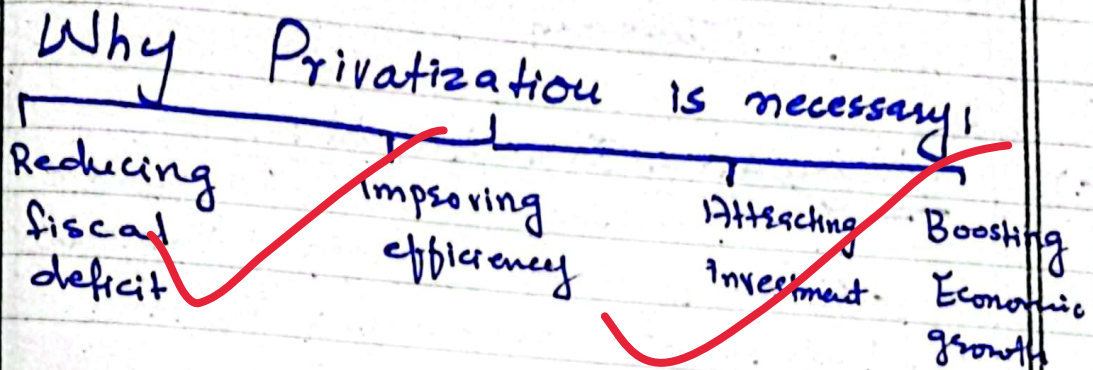 Why Privatization is necessary,
Reducing
fiscal
deficit
Improving
efficiency
Attracting
Investment.
Boosting
Economic
growth